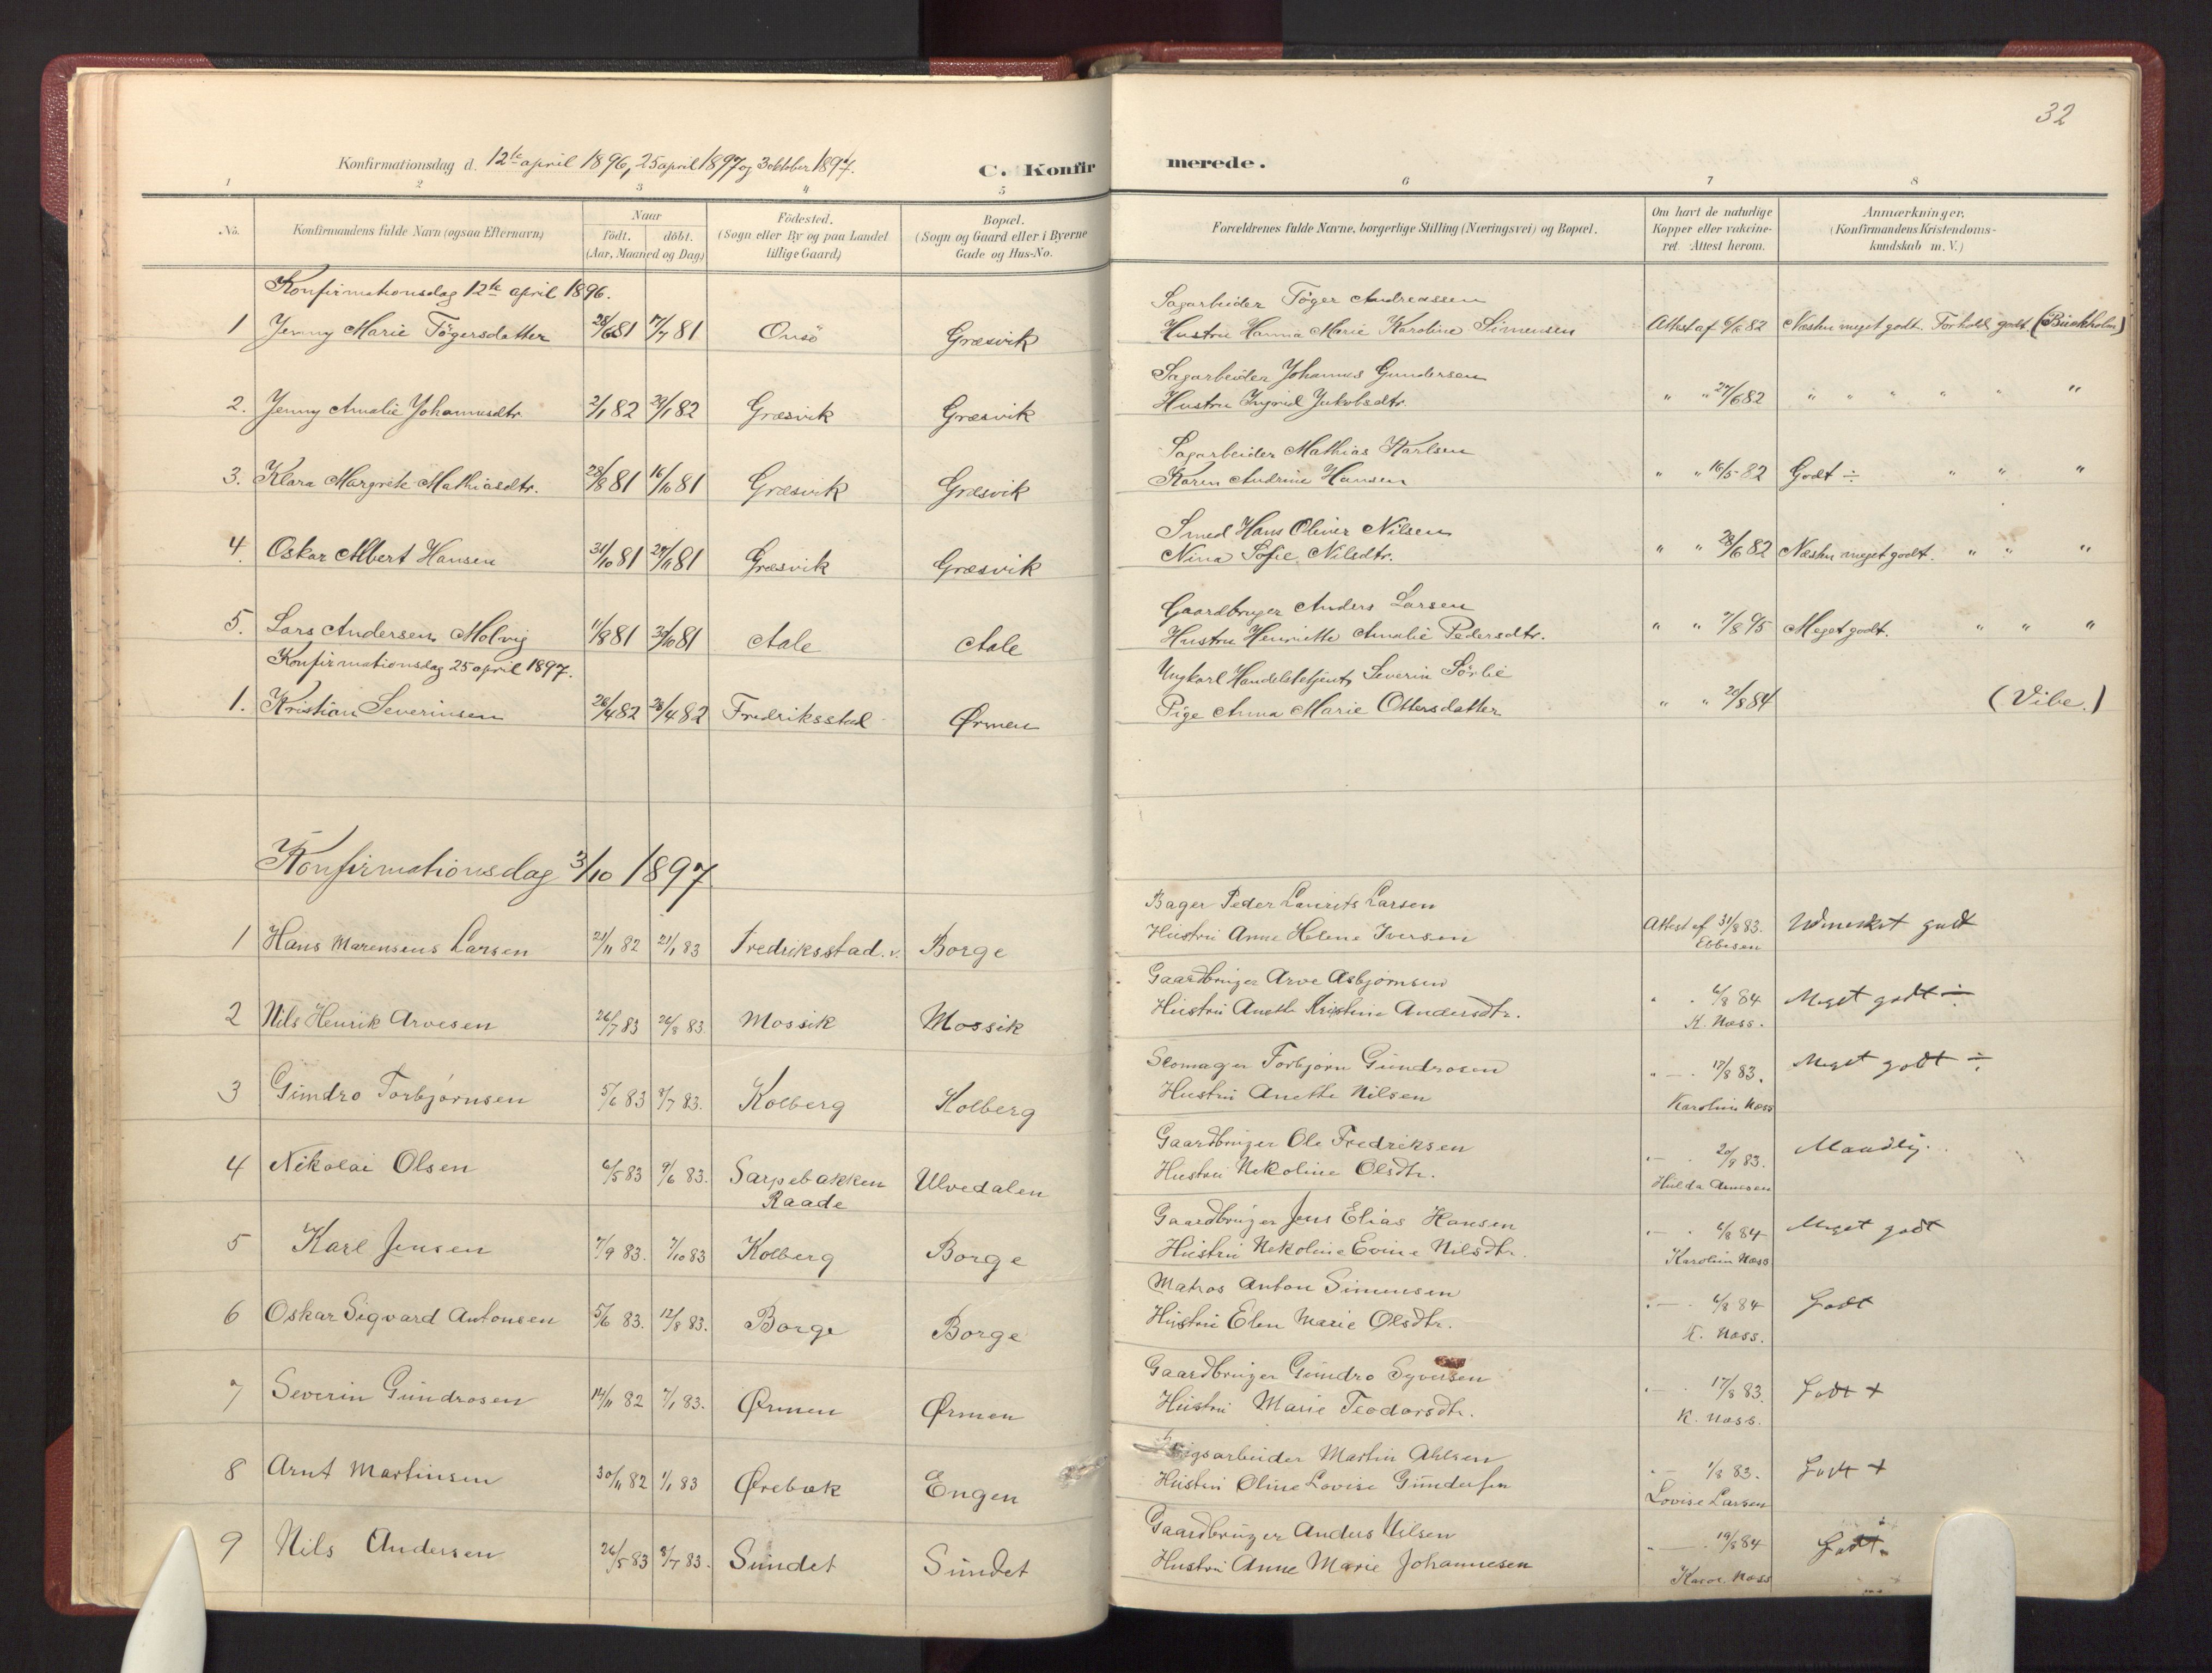 32
Konfirmationsdag d. 12te april 1896, 25 april 1897 og 3 oktober 1897.
C. Konfirmerede.
1 2 3 4 5 6 7 8
No. Konfirmandens fulde Navn (ogsaa Efternavn)
Naar
født. døbt.
(Aar, Maaned og Dag)
Fødested.
(Sogn eller By og paa Landet
tillige Gaard)
Bopæl.
(Sogn og Gaard eller i Byerne
Gade og Hus-No.
Forældrenes fulde Navne, borgerlige Stilling (Næringsvei) og Bopæl.
Om havt de naturlige
Kopper eller vakcine-
ret. Attest herom.
Anmærkninger.
(Konfirmandens Kristendoms-
kundskab m. V.)
Konfirmationsdag 12te april 1896.
Sagarbeider Töger Andreassen
1 Jenny Marie Tögersdatter 28/6 81 17/7 81 Onsö Græsvik Hustru Hanna Marie Karoline Simensen Attest af 6/6 82 Næsten meget godt. Forhold godt. (Buckholm)
Sagarbeider Johannes Gundersen
2. Jenny Amalie Johannesdtr. 2/1 82 29/1 82 Græsvik Græsvik Hustru Ingrid Jakobsdtr. " " 27/6 82 " " " " " "
Sagarbeider Mathias Karlsen
3. Klara Margrete Mathiasdtr. 28/8 81 16/10 81 Græsvik Græsvik Karen Andrine Hansen " " 16/5 82 Godt ÷ " " "
Smed Hans Oliver Nilsen
4. Oskar Albert Hansen 31/10 81 27/11 81 Græsvik Græsvik Nina Sofie Nilsdtr. " " 28/6 82 Næsten meget godt. " " "
Gaardbruger Anders Larsen
5. Lars Andersen Molvig 11/8 81 30/10 81 Aale Aale Hustru Henriette Amalie Pedersdtr. " " 7/8 95 Meget godt. " " "
Konfirmationsdag 25 april 1897.
Ungkarl Handelsbetjent Severin Sörlie
1. Kristian Severinsen 26/4 82 28/4 82 Fredriksstad Ørmen Pige Anna Marie Ottersdatter " " 20/8 84 (Vibe.)
Konfirmationsdag 3/10 1897
Bager Peder Laurits Larsen
1 Hans Marensens Larsen 21/11 82 21/1 83 Fredriksstad. v. Borge Hustru Anne Helene Iversen Attest af 31/8 83. Udmerket godt
Ebbesen
Gaardbruger Arve Asbjørnsen
2 Nils Henrik Arvesen 26/7 83 26/8 83 Mossik Mossik Hustru Anette Kristine Andersdtr. " " 6/8 84 Meget godt ÷
K. Næss.
Skomager Torbjørn Gundrosen
3 Gundro Torbjørnsen 5/6 83 8/7 83. Kolberg Kolberg Hustru Anette Nilsen " — 17/8 83. Meget godt ÷
Karolin Næss
Gaardbruger Ole Fredriksen
4 Nikolai Olsen 6/5 83 9/6 83. Sarpebakken Ulvedalen Hustru Nekoline Olsdtr. " — " 20/9 83. Maadelig.
Raade
Hulda Arnesen
Gaardbruger Jens Elias Hansen
5 Karl Jensen 7/9 83. 7/10 83 Kolberg Borge Hustru Nekoline Evine Nilsdtr. " — " 6/8 84 Meget godt
Karolin Næss
Matros Anton Simensen
6 Oskar Sigvard Antonsen 5/6 83. 12/8 83. Borge Borge Hustru Elen Marie Olsdtr. " — " 6/8 84 Godt
K. Næss.
Gaardbruger Gundro Syversen
7 Severin Gundrosen 14/11 82 7/1 83. Ørmen Ørmen Hustru Marie Teodorsdtr. " — " 17/8 83. Godt +
K. Næss.
Martin Ahlsen
8 Arnt Martinsen 30/11 82 1/1 83 Ørebæk Engen Hustru Oline Lovise Gundersen " — 1/8 83. Godt +
Lovise Larsen
Gaardbruger Anders Nilsen
9 Nils Andersen 26/5 83 8/7 83. Sundet Sundet Hustru Anne Marie Johannesen " — " 19/8 84 Godt.
Karol. Næss